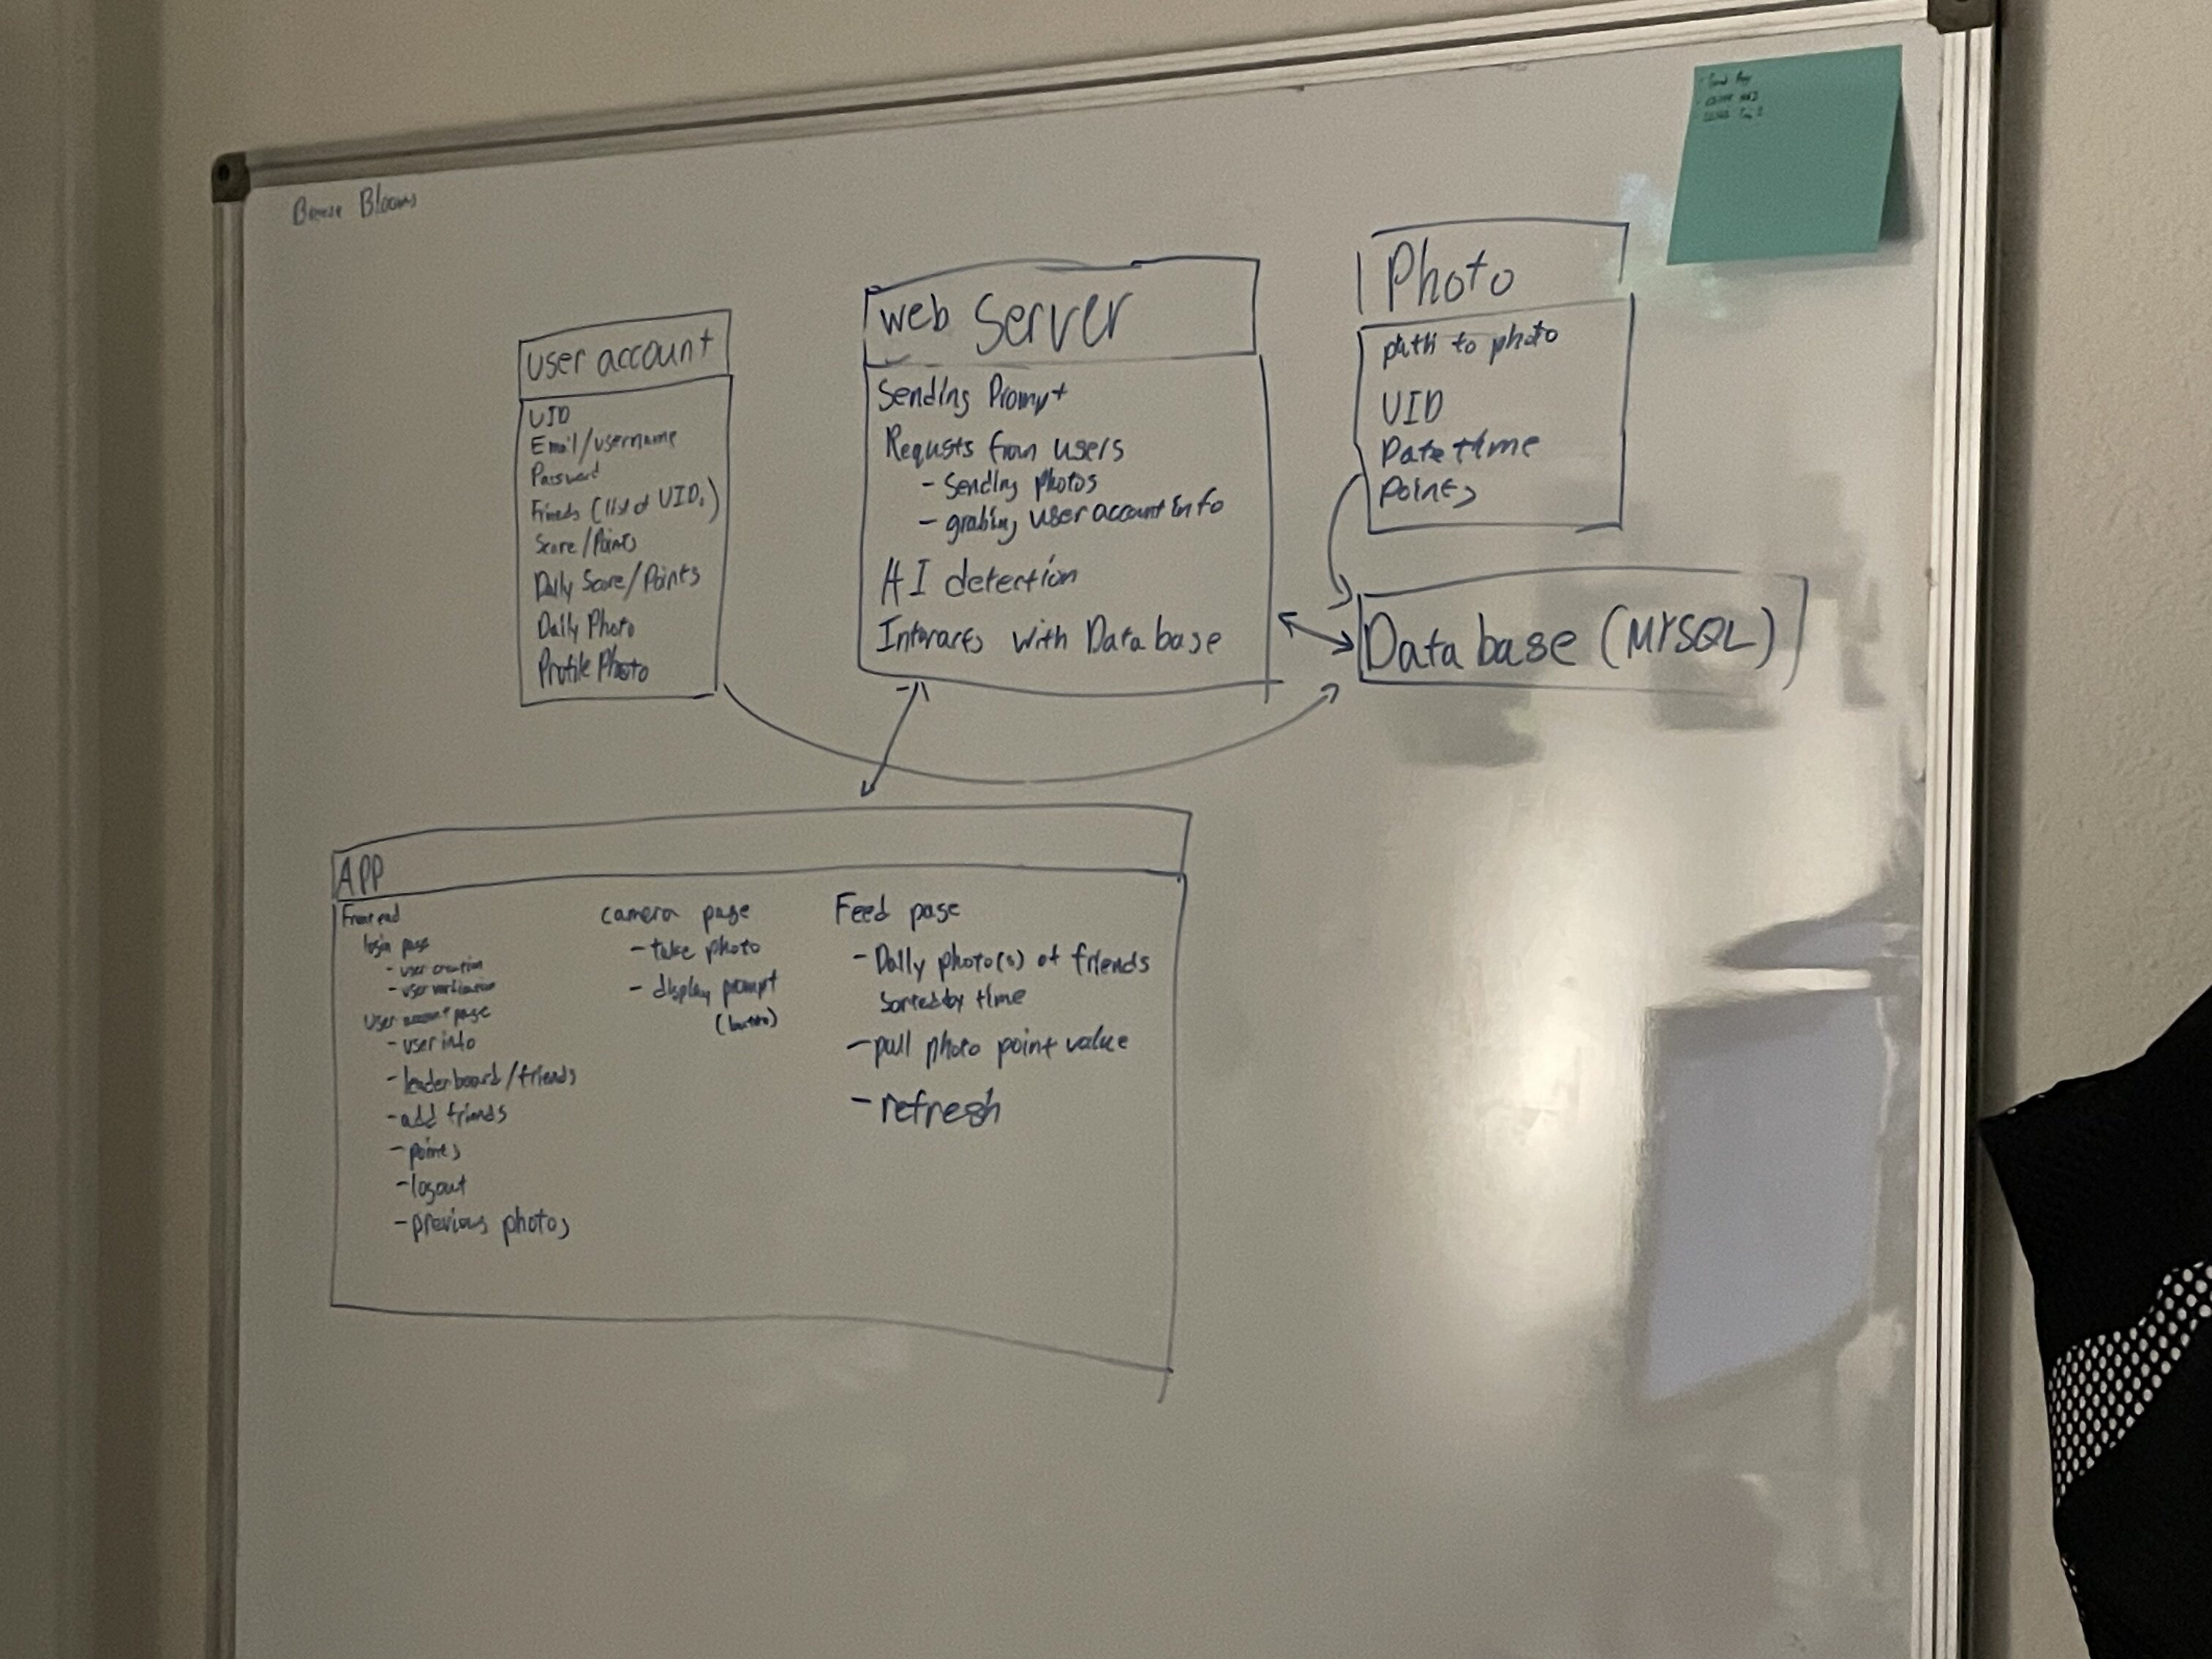 Blooms
user account
UID
Email/username
Password
Frineds (list of UIDs)
Score/Points
Daily Score/Points
Daily Photo
Profile Photo
web Server
Sending Prompt
Requsts from users
- Sending photos
- grabing user account info
AI detection
Interacts with Database
Photo
path to photo
UID
Datetime
Points
Database (MYSQL)
APP
Front end
login page
- user creation
- user verification
User account page
- user info
- leaderboard/friends
- add friends
- points
- logout
- previous photos
camera page
- take photo
- display prompt
Feed page
- Daily photo(s) of friends
Sorted by time
- pull photo point value
- refresh